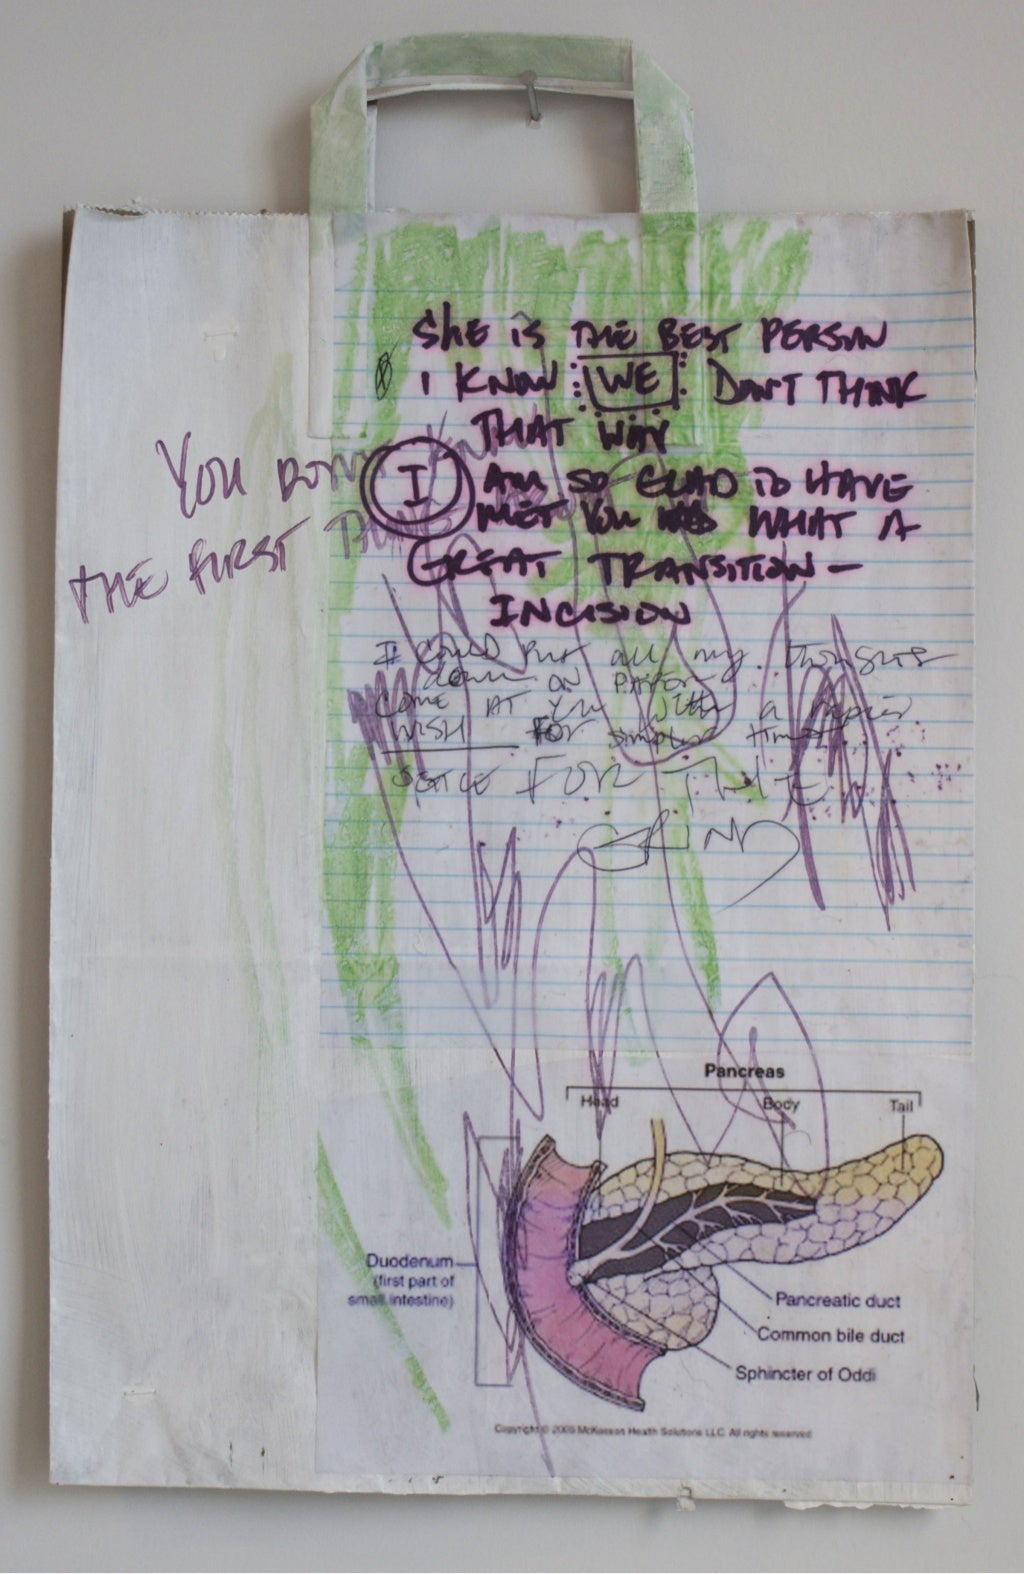 SHE IS THE BEST PERSON
I KNOW WE DON'T THINK
THAT WAY
YOU DON'T KN
I AM SO GLAD TO HAVE
MET YOU WHAT A
THE FIRST
GREAT TRANSITION —
INCISION
I COULD PUT all my THOUGHTS
down ON PAPER
COME AT YOU WITH a rapier
WISH FOR simpler times
FOR
Pancreas
Head Body Tail
Duodenum
(first part of
small intestine)
Pancreatic duct
Common bile duct
Sphincter of Oddi
Copyright © 2009 McKesson Health Solutions LLC. All rights reserved